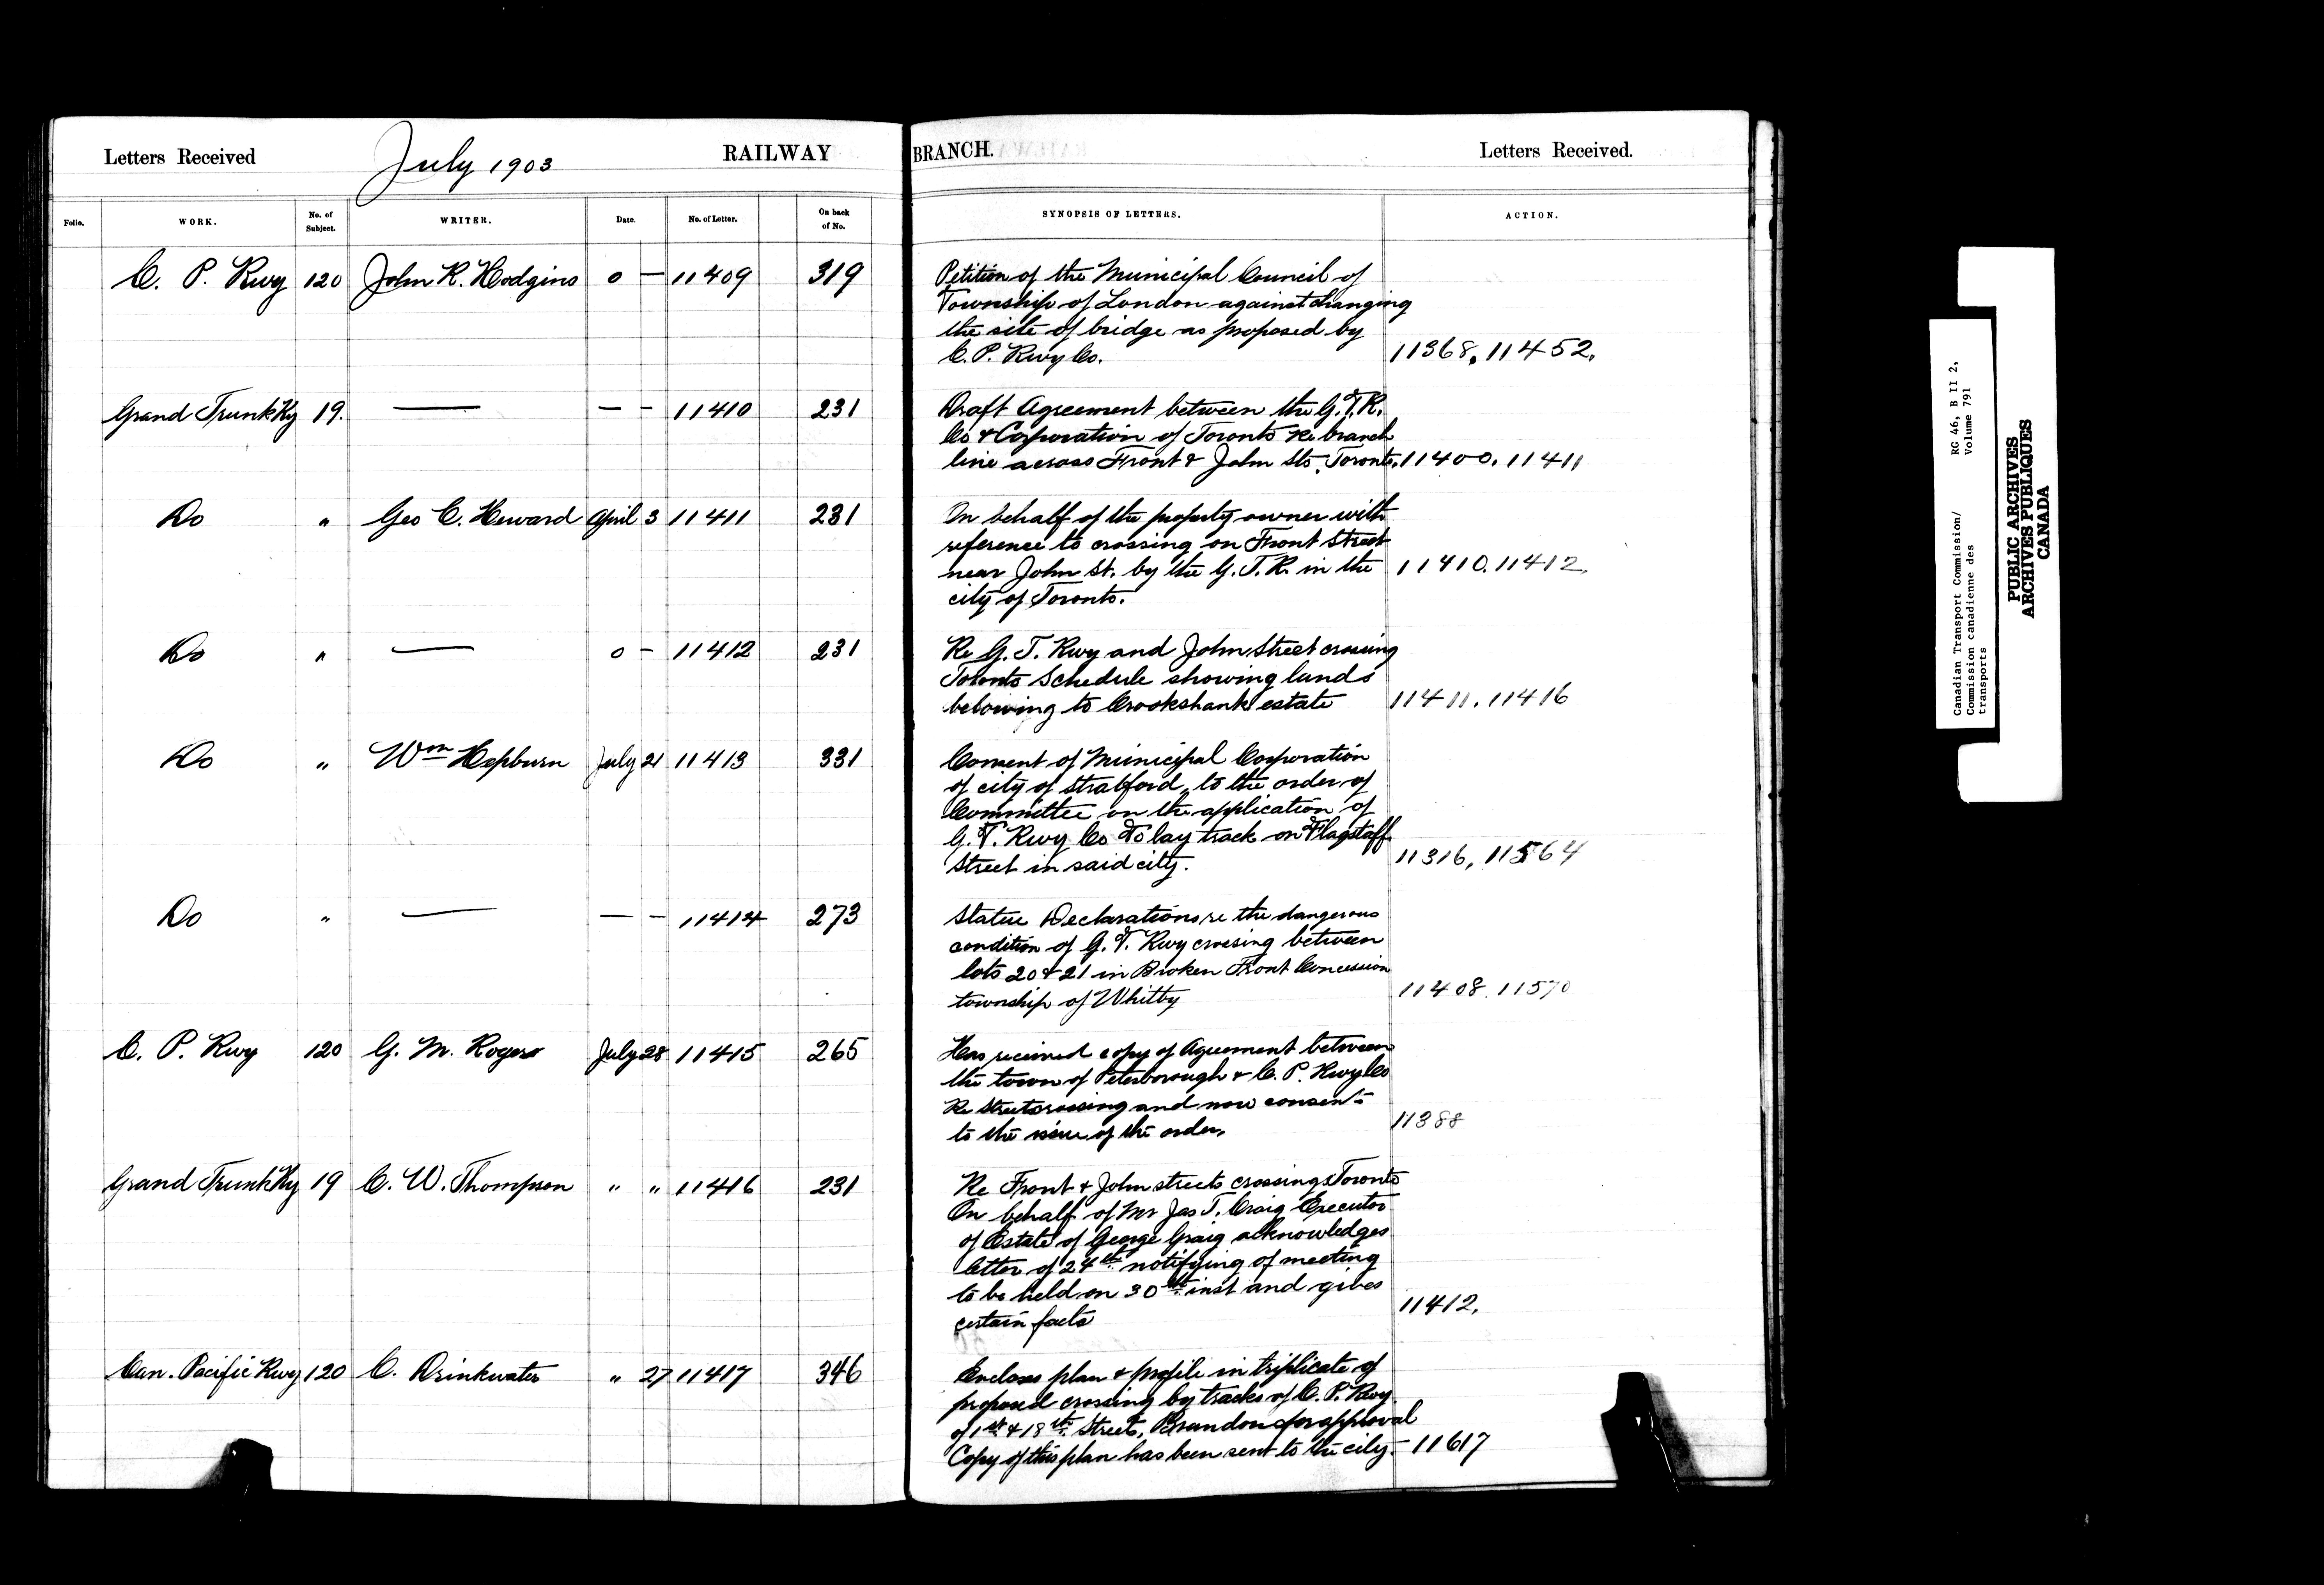 Letters Received July 1903 RAILWAY BRANCH. Letters Received.
Folio. WORK. No. of Subject. WRITER. Date. No. of Letter. On back of No. SYNOPSIS OF LETTERS. ACTION.
C. P. Rwy 120 John R. Hodgins o — 11409 319 Petition of the Municipal Council of
Township of London against changing
the site of bridge as proposed by
C. P. Rwy Co. 11368, 11452,
Grand Trunk Ry 19. — — — 11410 231 Draft Agreement between the G. T. R.
Co & Corporation of Toronto Re branch
line across Front & John Sts. Toronto, 11400, 11411
Do " Geo C. Heward April 3 11411 231 On behalf of the property owner with
reference to crossing on Front Street
near John St. by the G. T. R. in the 11410, 11412,
city of Toronto.
Do " — o — 11412 231 Re G. T. Rwy and John Street crossing
Toronto Schedule showing lands
belowing to Crookshank estate 11411, 11416
Do " Wm Hepburn July 21 11413 331 Consent of Municipal Corporation
of city of Stratford, to the order of
Committee on the application of
G. T. Rwy Co To lay track on Flagstaff
Street in said city. 11316, 11564
Do " — — — 11414 273 Statue Declarations re the dangerous
condition of G. T. Rwy crossing between
lots 20 & 21 in Broken Front Concession
township of Whitby 11408, 11570
C. P. Rwy 120 G. M. Rogers July 28 11415 265 Has received copy of Agreement between
the town of Peterborough & C. P. Rwy Co
Re Street crossing and now consents
to the issue of the order, 11388
Grand Trunk Ry 19 C. W. Thompson " " 11416 231 Re Front & John streets crossings Toronto
On behalf of Mr Jas T. Craig Executor
of Estate of George Graig acknowledges
letter of 24th notifying of meeting
to be held on 30th inst and gives
certain facts 11412,
Can. Pacific Rwy 120 C. Drinkwater " 27 11417 346 Encloses plan & profile in triplicate of
proposed crossing by tracks of C. P. Rwy
of 1st & 18th Streets, Brandon for approval
Copy of this plan has been sent to the city. 11617
Canadian Transport Commission/ RG 46, B II 2,
Commission canadienne des Volume 791
transports
PUBLIC ARCHIVES
ARCHIVES PUBLIQUES
CANADA